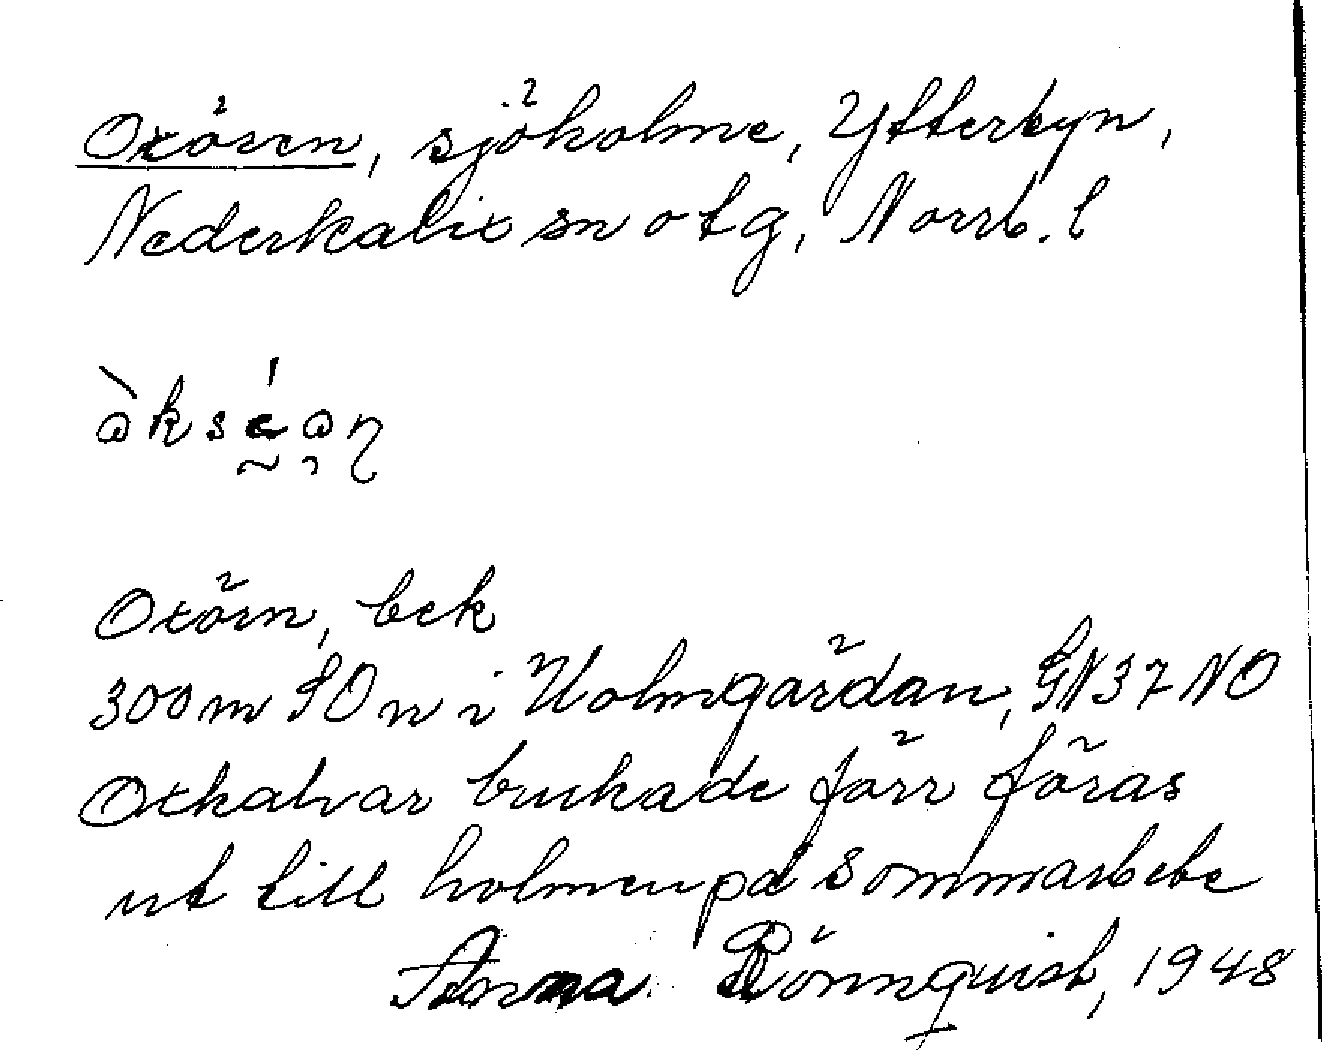 Oxören, sjöholme, Ytterbyn,
Nederkalix sn o tg, Norrb. l
Oxörn, bek
300 m SO n i Holmgärdan, GN 37 NO
Oxkalvar brukade förr föras
ut till holmen på sommarbete
Anna Rönnquist, 1948